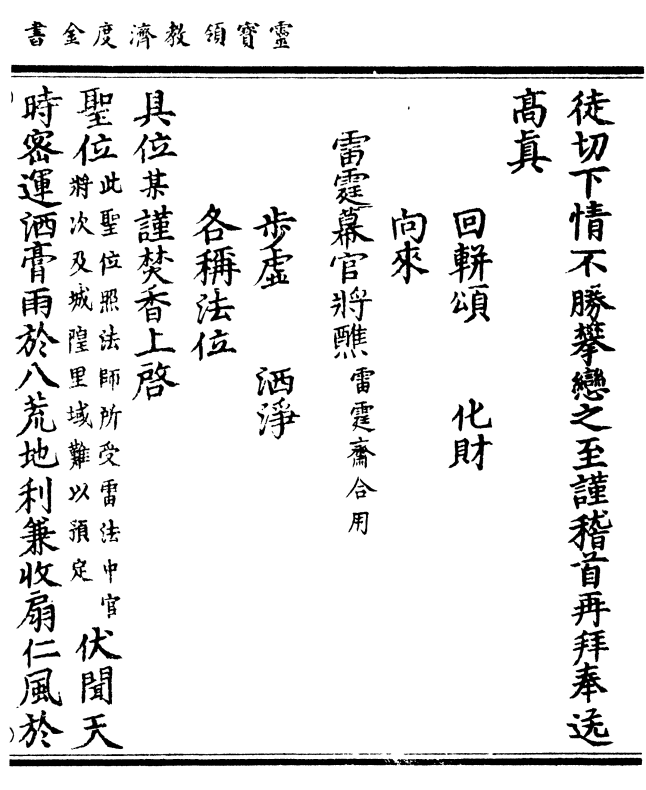 靈寶領教濟度金書
徒切下情不勝攀戀之至謹稽首再拜奉送
高眞
回軿頌　化財
向來
雷霆幕官將醮雷霆齋合用
步虛　洒淨
各稱法位
具位某謹焚香上啓
聖位此聖位照法師所受雷法中官將次及城隍里域難以預定伏聞天
時密運洒膏雨於八荒地利兼收扇仁風於